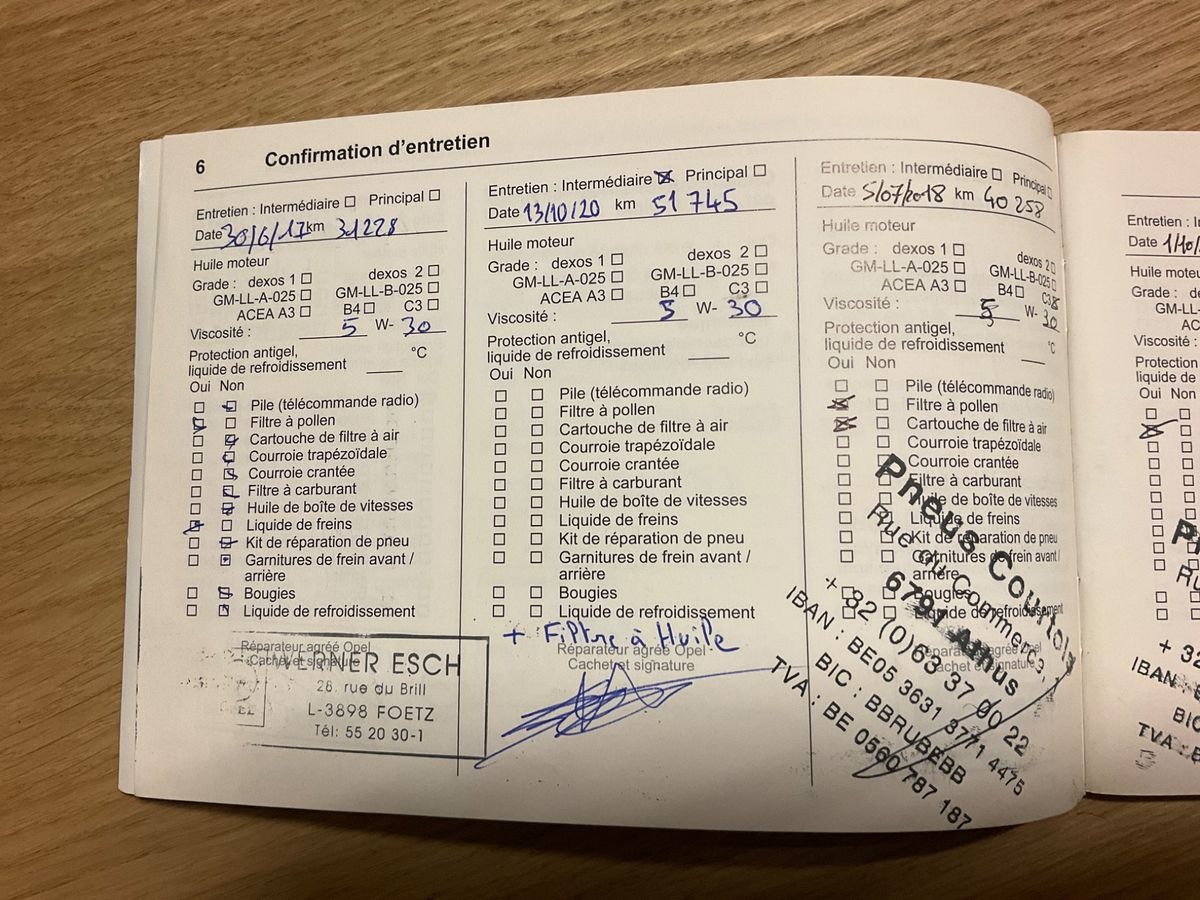 6 Confirmation d'entretien
Entretien : Intermédiaire ☐ Principal ☐
Date 30/6/17 km 31228
Huile moteur
Grade : dexos 1 ☐ dexos 2 ☐
GM-LL-A-025 ☐ GM-LL-B-025 ☐
ACEA A3 ☐ B4 ☐ C3 ☐
Viscosité : 5 W- 30
Protection antigel,
liquide de refroidissement ____ °C
Oui Non
Pile (télécommande radio)
Filtre à pollen
Cartouche de filtre à air
Courroie trapézoïdale
Courroie crantée
Filtre à carburant
Huile de boîte de vitesses
Liquide de freins
Kit de réparation de pneu
Garnitures de frein avant /
arrière
Bougies
Liquide de refroidissement
Réparateur agréé Opel
Cachet et signature
WERNER ESCH
28, rue du Brill
L-3898 FOETZ
Tél: 55 20 30-1
Entretien : Intermédiaire ☒ Principal ☐
Date 13/10/20 km 51 745
Huile moteur
Grade : dexos 1 ☐ dexos 2 ☐
GM-LL-A-025 ☐ GM-LL-B-025 ☐
ACEA A3 ☐ B4 ☐ C3 ☐
Viscosité : 5 W- 30
Protection antigel,
liquide de refroidissement ____ °C
Oui Non
Pile (télécommande radio)
Filtre à pollen
Cartouche de filtre à air
Courroie trapézoïdale
Courroie crantée
Filtre à carburant
Huile de boîte de vitesses
Liquide de freins
Kit de réparation de pneu
Garnitures de frein avant /
arrière
Bougies
Liquide de refroidissement
+ Filtre à Huile
Réparateur agréé Opel
Cachet et signature
Entretien : Intermédiaire ☐ Principal ☐
Date 5/07/2018 km 40 258
Huile moteur
Grade : dexos 1 ☐ dexos 2 ☐
GM-LL-A-025 ☐ GM-LL-B-025 ☐
ACEA A3 ☐ B4 ☐ C3
Viscosité : 5 W- 30
Protection antigel,
liquide de refroidissement ____ °C
Oui Non
Pile (télécommande radio)
Filtre à pollen
Cartouche de filtre à air
Courroie trapézoïdale
Courroie crantée
Filtre à carburant
Huile de boîte de vitesses
Liquide de freins
Kit de réparation de pneu
Garnitures de frein avant /
arrière
Bougies
Liquide de refroidissement
Réparateur agréé Opel
Cachet et signature
Pneus
Rue du Commerce,
6791 Athus
+ 32 (0)63 37 00 22
IBAN : BE05 3631 3771 4475
BIC : BBRUBEBB
TVA : BE 0560 787 187
Entretien : In
Date 1/10/
Huile mote
Grade : d
GM-L
AC
Viscosité :
Protection
liquide de
Oui Non
+ 32
IBAN
BIC
TVA :